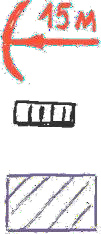 15м